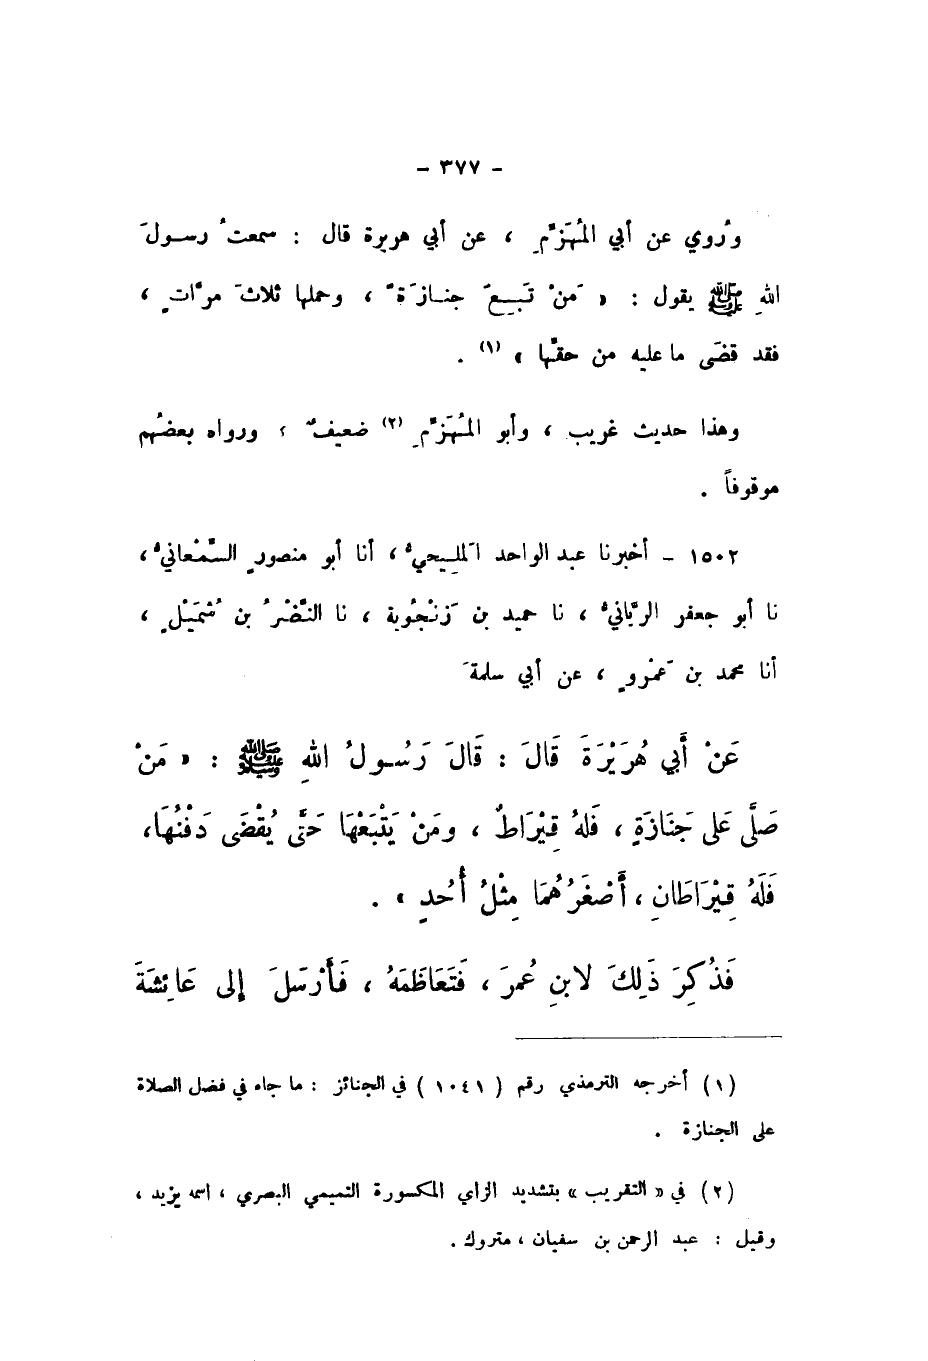 - ٣٧٧ -
ورُوي عن أبي المُهَزِّمِ ، عن أبي هريرة قال : سمعتُ رسولَ
اللهِ ﷺ يقول : « مَنْ تَبِعَ جنازَةً ، وحملها ثلاثَ مرّاتٍ ،
فقد قضَى ما عليه من حقّها » (١) .
وهذا حديث غريب ، وأبو المُهَزِّمِ (٢) ضعيفٌ ، ورواه بعضُهم
موقوفاً .
١٥٠٢ – أخبرنا عبد الواحد المَلِيحيُّ ، أنا أبو منصورٍ السَّمْعانيُّ ،
نا أبو جعفر الرَّيّانيُّ ، نا حميد بن زَنْجُوية ، نا النَّضْرُ بن شُمَيْلٍ ،
أنا محمد بن عَمْروٍ ، عن أبي سلمةَ
عَنْ أَبي هُرَيْرَةَ قَالَ : قَالَ رَسُولُ اللهِ ﷺ : « مَنْ
صَلَّى عَلى جَنَازَةٍ ، فَلهُ قِيْرَاطٌ ، ومَنْ يَتْبَعْهَا حَتَّى يُقْضَى دَفْنُهَا،
فَلَهُ قِيْرَاطَانِ ، أَصْغَرُهُمَا مِثْلُ أُحُدٍ » .
فَذُكِرَ ذَلِكَ لابنِ عُمرَ ، فَتَعَاظَمَهُ ، فَأَرْسَلَ إلى عَائِشَةَ
(١) أخرجه الترمذي رقم ( ١٠٤١ ) في الجنائز : ما جاء في فضل الصلاة
على الجنازة .
(٢) في « التقريب » بتشديد الزاي المكسورة التميمي البصري ، اسمه يزيد ،
وقيل : عبد الرحمن بن سفيان ، متروك .